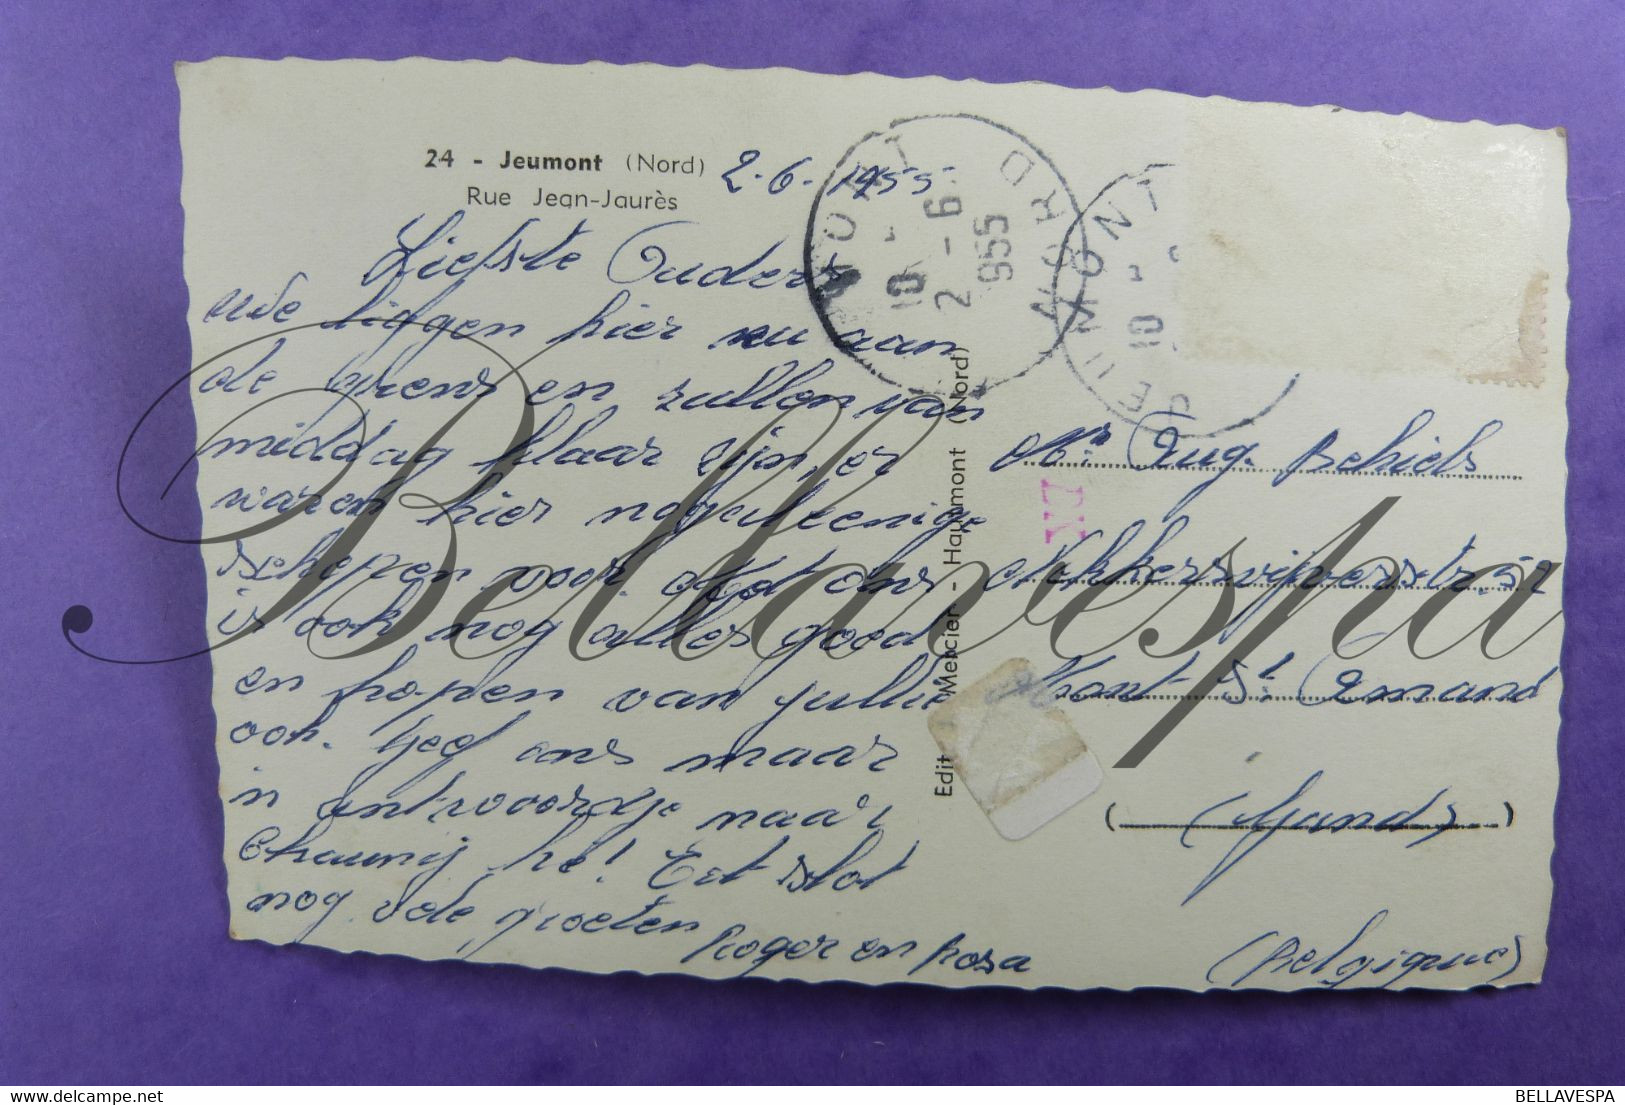 24 - Jeumont (Nord)
Rue Jean-Jaurès
2-6-1955
Liefste Ouders
we liggen hier nu aan
de grens en zullen van
middag klaar zijn, er
waren hier nog alleenige
schepen voor. Met ons
is ook nog alles goed
en hopen van jullie
ook. Geef ons maar
in antwoordje naar
Chauny he! Tot slot
nog vele groeten
Roger en Rosa
Edit Mercier - Haumont (Nord)
JEUMONT
NORD
10
2 - 6
955
JEUMONT
10
Mr. Aug. Behiels
Mokkersvijverstr. 52
Mont St. Amand
(Gand)
(Belgique)
Bellavespa
BELLAVESPA